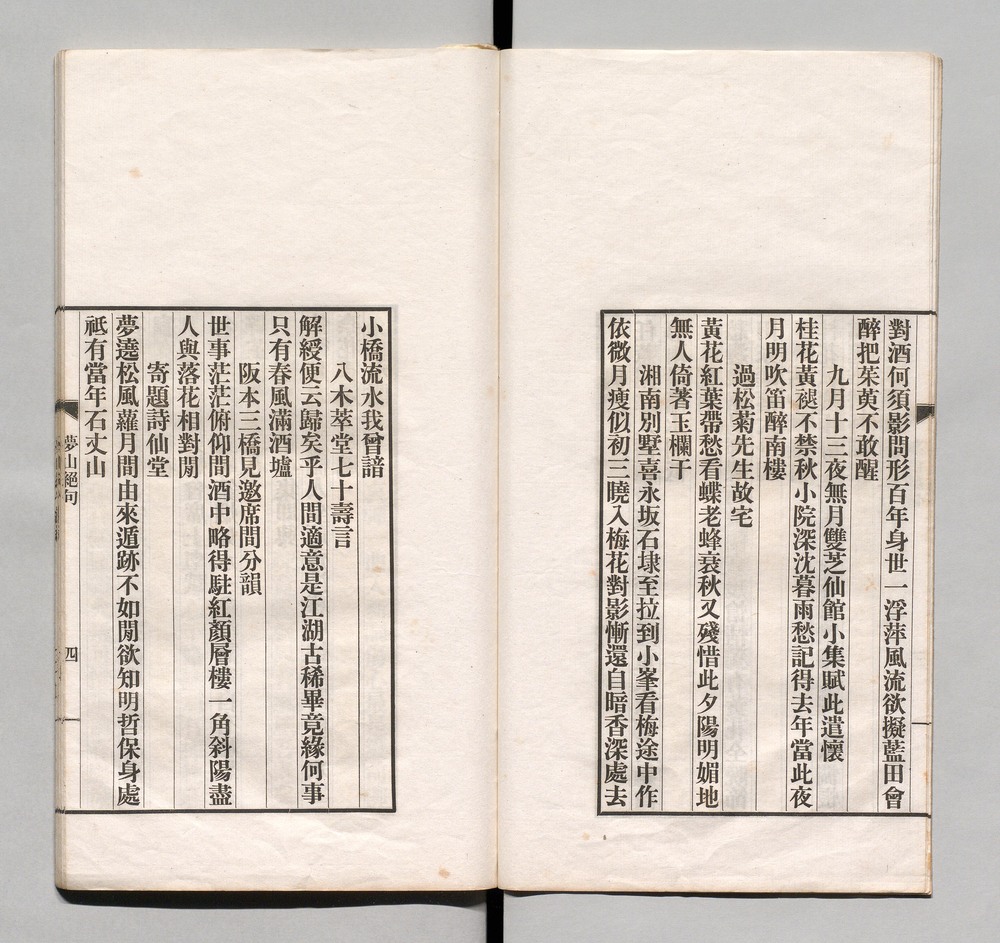 對酒何須影問形百年身世一浮萍風流欲擬藍田會
醉把茱萸不敢醒
九月十三夜無月雙芝仙館小集賦此遣懷
桂花黃褪不禁秋小院深沈暮雨愁記得去年當此夜
月明吹笛醉南樓
過松菊先生故宅
黃花紅葉帶愁看蝶老蜂衰秋又殘惜此夕陽明媚地
無人倚著玉欄干
湘南別墅喜永坂石埭至拉到小峯看梅途中作
依微月瘦似初三曉入梅花對影慚還自暗香深處去
小橋流水我曾諳
八木萃堂七十壽言
解綬便云歸矣乎人間適意是江湖古稀畢竟緣何事
只有春風滿酒壚
阪本三橋見邀席間分韻
世事茫茫俯仰間酒中略得駐紅顏層樓一角斜陽盡
人與落花相對閒
寄題詩仙堂
夢遶松風蘿月間由來遁跡不如閒欲知明哲保身處
祗有當年石丈山
夢山絕句
四